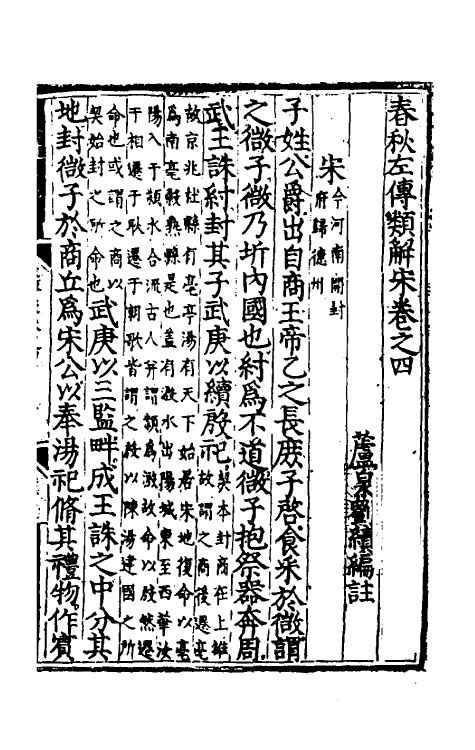 春秋左傳類解宋卷之四
蘆泉劉績編註
宋
今河南開封
府歸德州
子姓公爵出自商王帝乙之長庶子啓食采於微謂
之微子微乃圻內國也紂為不道微子抱祭器奔周
武王誅紂封其子武庚以續殷祀
契本封商在上雒
故謂之商後遷亳
故京兆杜縣有亳亭湯有天下始居宋地復命以亳
為南亳穀熟縣是也蓋有溵水出陽城東至西華汝
陽入于潁水合流古人并謂潁為溵故命以殷然遷
于相遷于耿遷于朝歌皆謂之殷以陳湯建國之所
命也或謂之商以
契始封之所命也
武庚以三監畔成王誅之中分其
地封微子於商丘為宋公以奉湯祀脩其禮物作賓